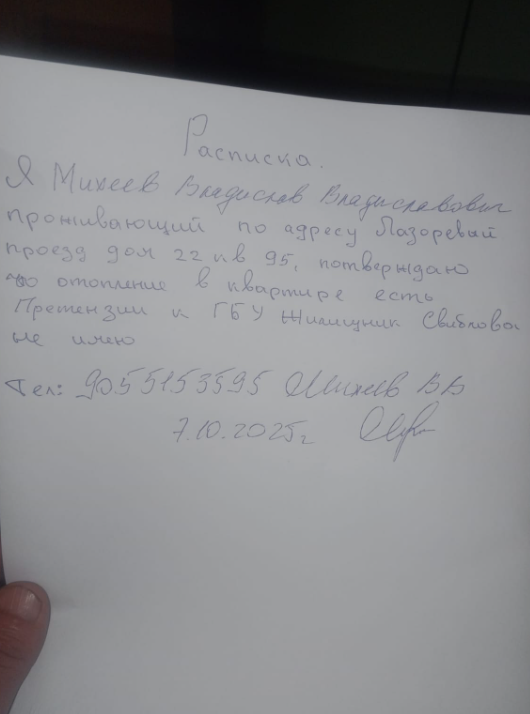 Расписка.
Я Михеев Владислав Владиславович
проживающий по адресу Лазоревый
проезд дом 22 кв 95, потверждаю
что отопление в квартире есть
Претензии к ГБУ Жилищник Свиблово
не имею
Тел: 9055153595 Михеев ВВ
7.10.2025г